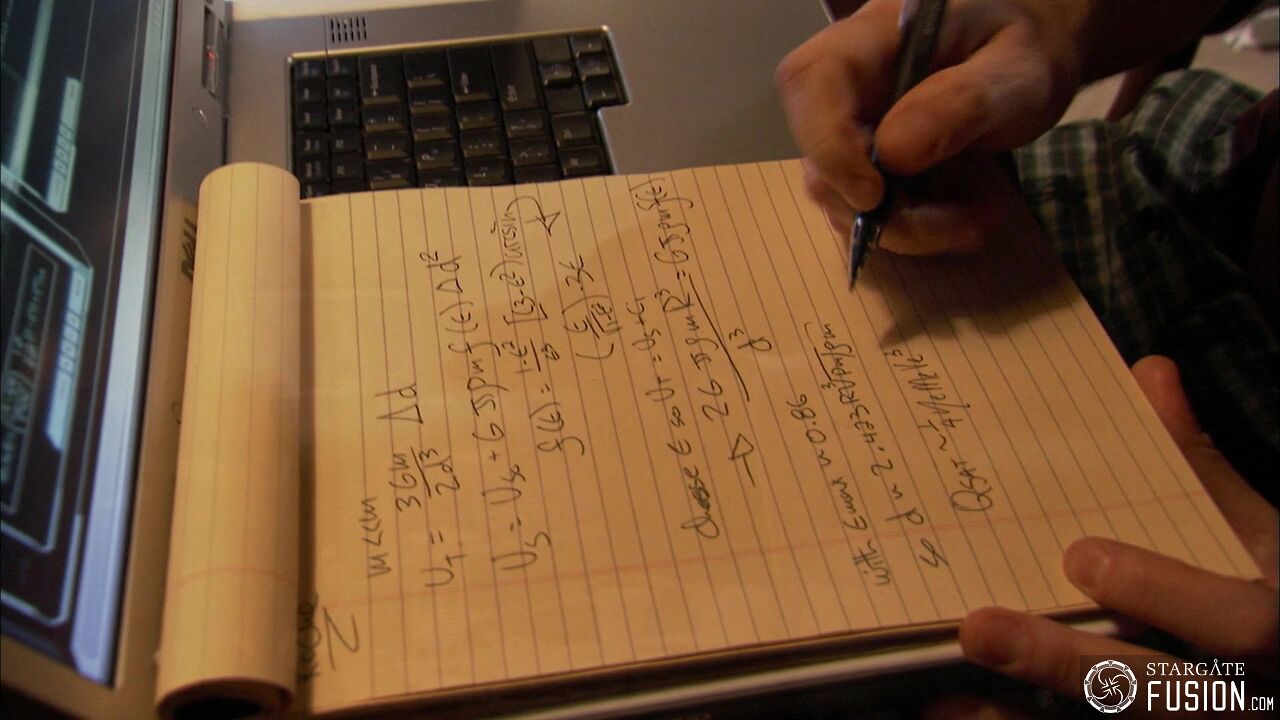 m<<m
U_T = 3Gm/2d³ Δd
U_S = U_Sc + Gπρm f(ε) Δd²
f(ε) = 1-ε²/ε³ [(3-ε²) arcsin
- 3ε
Choose ε so U_T = U_S + C_1
→ 2Gπρm R³/d³ = Gπρm f(ε)
with εmax ~ 0.86
so d ~ 2.423R ³√ρm/ρm
STARGATE
FUSION.COM